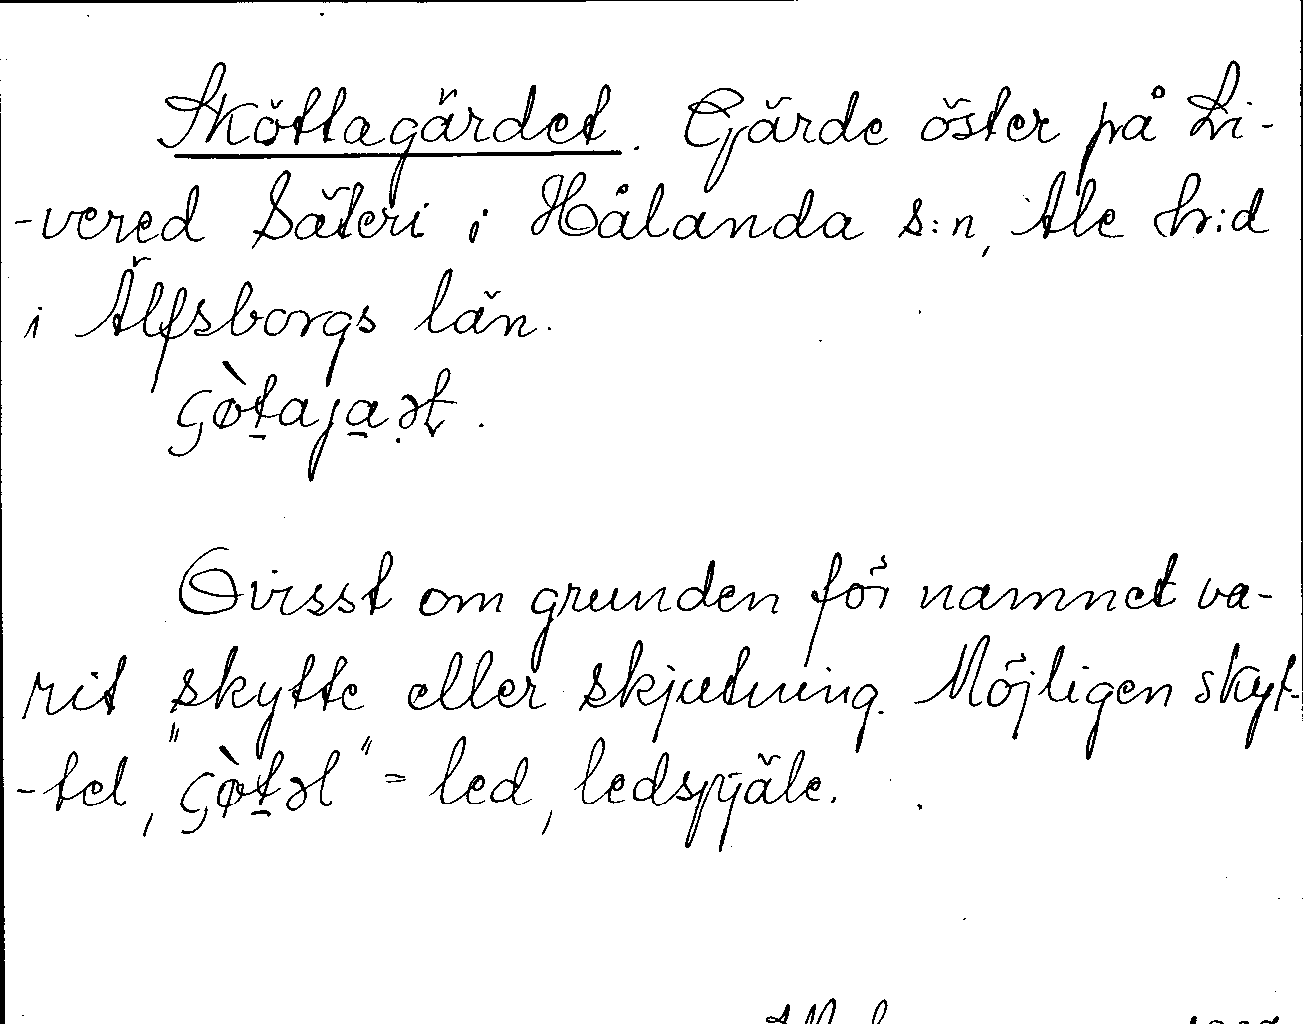 Sköttagärdet. Gärde öster på Li-
-vered Säteri i Hålanda s:n, Ale hr:d
i Älfsborgs län.
çø̀t̠aja̠ṛət.
Ovisst om grunden för namnet va-
rit skytte eller skjutning. Möjligen skyt-
-tel, "çø̀t̠əl" = led, ledspjäle.